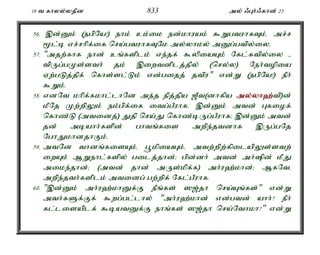 19 வ காலல்லதீன 833 அல் ஃபுர்கான் 25
56. இன்னும் (நபியே!) நாம் உம்மை நன்மாரயம் கூறுபவராகவும், அச்ச
மூட்டி எச்சரிக்கை செய்பவராகவுமே அல்லாமல் அனுப்பவில்லை.
57. "அதற்காக நான் உங்களிடம் எந்தக் கூலியையும் கேட்கவில்லை -
விருப்பமுள்ளவர் தம் இறைவனிடத்தில் (செல்ல) நேர்வழியை
ஏற்படுத்திக் கொள்ளட்டும் என்பதைத் தவிர" என்று (நபியே) நீர்
கூறும்.
58. எனவே மரிக்கமாட்டானே அந்த நித்திய ஜீவ(னாகிய அல்லாஹ்வி)ன்
மீதே முற்றிலும் நம்பிக்கை வைப்பீராக. இன்னும் அவன் புகழைக்
கொண்டு (அவனைத்) துதி செய்து கொண்டிருப்பீராக; இன்னும் அவன்
தன் அடியார்களின் பாவங்களை அறிந்தவனாக இருப்பதே
போதுமானதாகும்.
59. அவனே வானங்களையும், பூமியையும், அவற்றிற்கிடையிலுள்ளவற்
றையும் ஆறுநாட்களில் படைத்தான்; பின்னர் அவன் அர்ஷின் மீது
அமைந்தான்; (அவன் தான் அருள்மிக்க) அர்ரஹ்மான்; ஆகவே,
அறிந்தவர்களிடம் அவனைப் பற்றிக் கேட்பீராக.
60. "இன்னும் அர்ரஹ்மானுக்கு நீங்கள் ஸஜ்தா செய்யுங்கள்" என்று
அவர்களுக்குக் கூறப்பட்டால் "அர்ரஹ்மான் என்பவன் யார்? நீர்
கட்டளையிடக் கூடியவனுக்கு நாங்கள் ஸஜ்தா செய்வோமா?" என்று